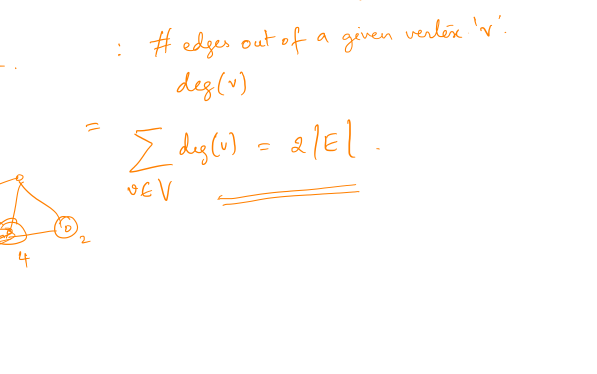 : # edges out of a given vertex 'v'.
deg(v)
= ∑ deg(v) = 2|E|.
v∈V
2
4